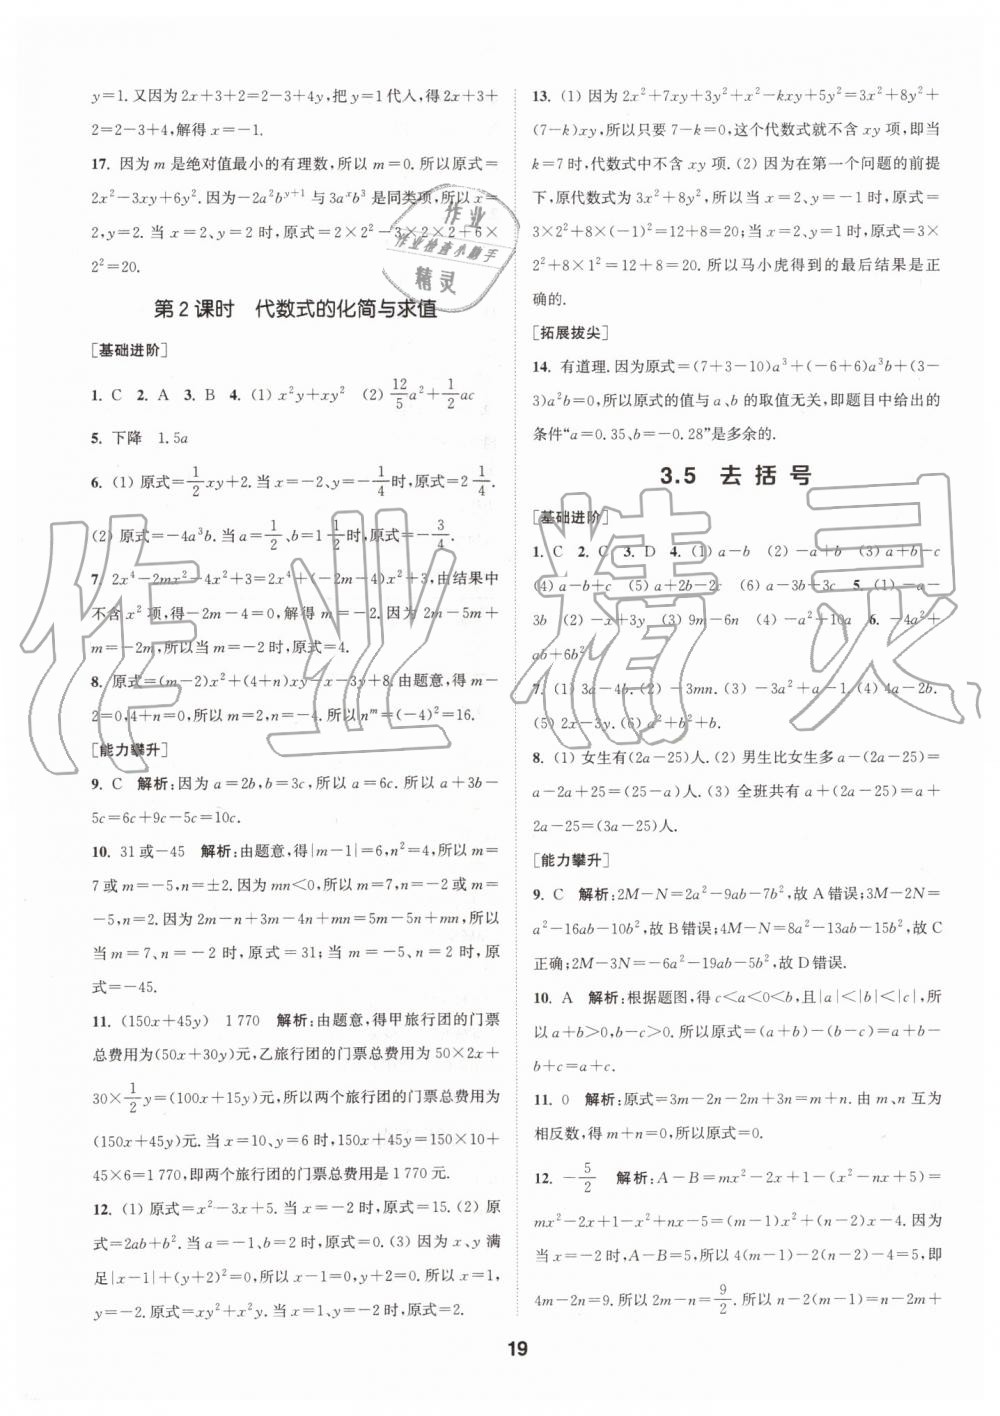 y=1. 又因为 2x+3+2=2-3+4y,把 y=1 代入,得 2x+3+
2=2-3+4,解得 x=-1.
17. 因为 m 是绝对值最小的有理数,所以 m=0. 所以原式=
2x²-3xy+6y². 因为-2a²bʸ⁺¹与 3aˣb³ 是同类项,所以 x=
2,y=2. 当 x=2、y=2 时,原式=2×2²-3×2×2+6×
2²=20.
第 2 课时 代数式的化简与求值
[基础进阶]
1. C 2. A 3. B 4. (1) x²y+xy² (2) 12/5a²+1/2ac
5. 下降 1.5a
6. (1) 原式=1/2xy+2. 当 x=-2、y=-1/4时,原式=2 1/4.
(2) 原式=-4a³b. 当 a=1/2、b=1 1/2时,原式=-3/4.
7. 2x⁴-2mx²-4x²+3=2x⁴+(-2m-4)x²+3,由结果中
不含 x² 项,得-2m-4=0,解得 m=-2. 因为 2m-5m+
m=-2m,所以当 m=-2 时,原式=4.
8. 原式=(m-2)x²+(4+n)xy-x-3y+8. 由题意,得 m-
2=0,4+n=0,所以 m=2,n=-4. 所以 nᵐ=(-4)²=16.
[能力攀升]
9. C 解析:因为 a=2b,b=3c,所以 a=6c. 所以 a+3b-
5c=6c+9c-5c=10c.
10. 31 或-45 解析:由题意,得|m-1|=6,n²=4,所以 m=
7 或 m=-5,n=±2. 因为 mn<0,所以 m=7,n=-2 或 m=
-5,n=2. 因为 2m-n+3m-4n+mn=5m-5n+mn,所以
当 m=7、n=-2 时,原式=31;当 m=-5、n=2 时,原
式=-45.
11. (150x+45y) 1 770 解析:由题意,得甲旅行团的门票
总费用为(50x+30y)元,乙旅行团的门票总费用为 50×2x+
30×1/2y=(100x+15y)元,所以两个旅行团的门票总费用为
(150x+45y)元. 当 x=10、y=6 时,150x+45y=150×10+
45×6=1 770,即两个旅行团的门票总费用是 1 770 元.
12. (1) 原式=x²-3x+5. 当 x=-2 时,原式=15. (2) 原
式=2ab+b². 当 a=-1、b=2 时,原式=0. (3) 因为 x、y 满
足|x-1|+(y+2)²=0,所以 x-1=0,y+2=0. 所以 x=1,
y=-2. 原式=xy²+x²y. 当 x=1、y=-2 时,原式=2.
13. (1) 因为 2x²+7xy+3y²+x²-kxy+5y²=3x²+8y²+
(7-k)xy,所以只要 7-k=0,这个代数式就不含 xy 项,即当
k=7 时,代数式中不含 xy 项. (2) 因为在第一个问题的前提
下,原代数式为 3x²+8y². 所以当 x=2、y=-1 时,原式=
3×2²+8×(-1)²=20. 当 x=2、y=1 时,原式=3×
2²+8×1²=12+8=20. 所以马小虎得到的最后结果是正
确的.
[拓展拔尖]
14. 有道理. 因为原式=(7+3-10)a³+(-6+6)a³b+(3-
3)a²b=0,所以原式的值与 a、b 的取值无关,即题目中给出的
条件“a=0.35、b=-0.28”是多余的.
3.5 去 括 号
[基础进阶]
1. C 2. C 3. D 4. (1) a-b (2) -a+b (3) a+b-c
(4) a-b+c (5) a+2b-2c (6) a-3b+3c 5. (1) -a-
3b (2) -x+3y (3) 9m-6n (4) -a²+10a 6. -4a²+
ab+6b²
7. (1) 3a-4b. (2) -3mn. (3) -3a²+a-1. (4) 4a-2b.
(5) 2x-3y. (6) a²+b²+b.
8. (1) 女生有(2a-25)人. (2) 男生比女生多 a-(2a-25)=
a-2a+25=(25-a)人. (3) 全班共有 a+(2a-25)=a+
2a-25=(3a-25)人.
[能力攀升]
9. C 解析:2M-N=2a²-9ab-7b²,故 A 错误;3M-2N=
a²-16ab-10b²,故 B 错误;4M-N=8a²-13ab-15b²,故 C
正确;2M-3N=-6a²-19ab-5b²,故 D 错误.
10. A 解析:根据题图,得 c<a<0<b,且|a|<|b|<|c|,所
以 a+b>0,b-c>0. 所以原式=(a+b)-(b-c)=a+b-
b+c=a+c.
11. 0 解析:原式=3m-2n-2m+3n=m+n. 由 m、n 互为
相反数,得 m+n=0,所以原式=0.
12. -5/2 解析:A-B=mx²-2x+1-(x²-nx+5)=
mx²-2x+1-x²+nx-5=(m-1)x²+(n-2)x-4. 因为
当 x=-2 时,A-B=5,所以 4(m-1)-2(n-2)-4=5,即
4m-2n=9. 所以 2m-n=9/2. 所以 n-2(m-1)=n-2m+
19
作业
作业检查小助手
精灵
作业精灵